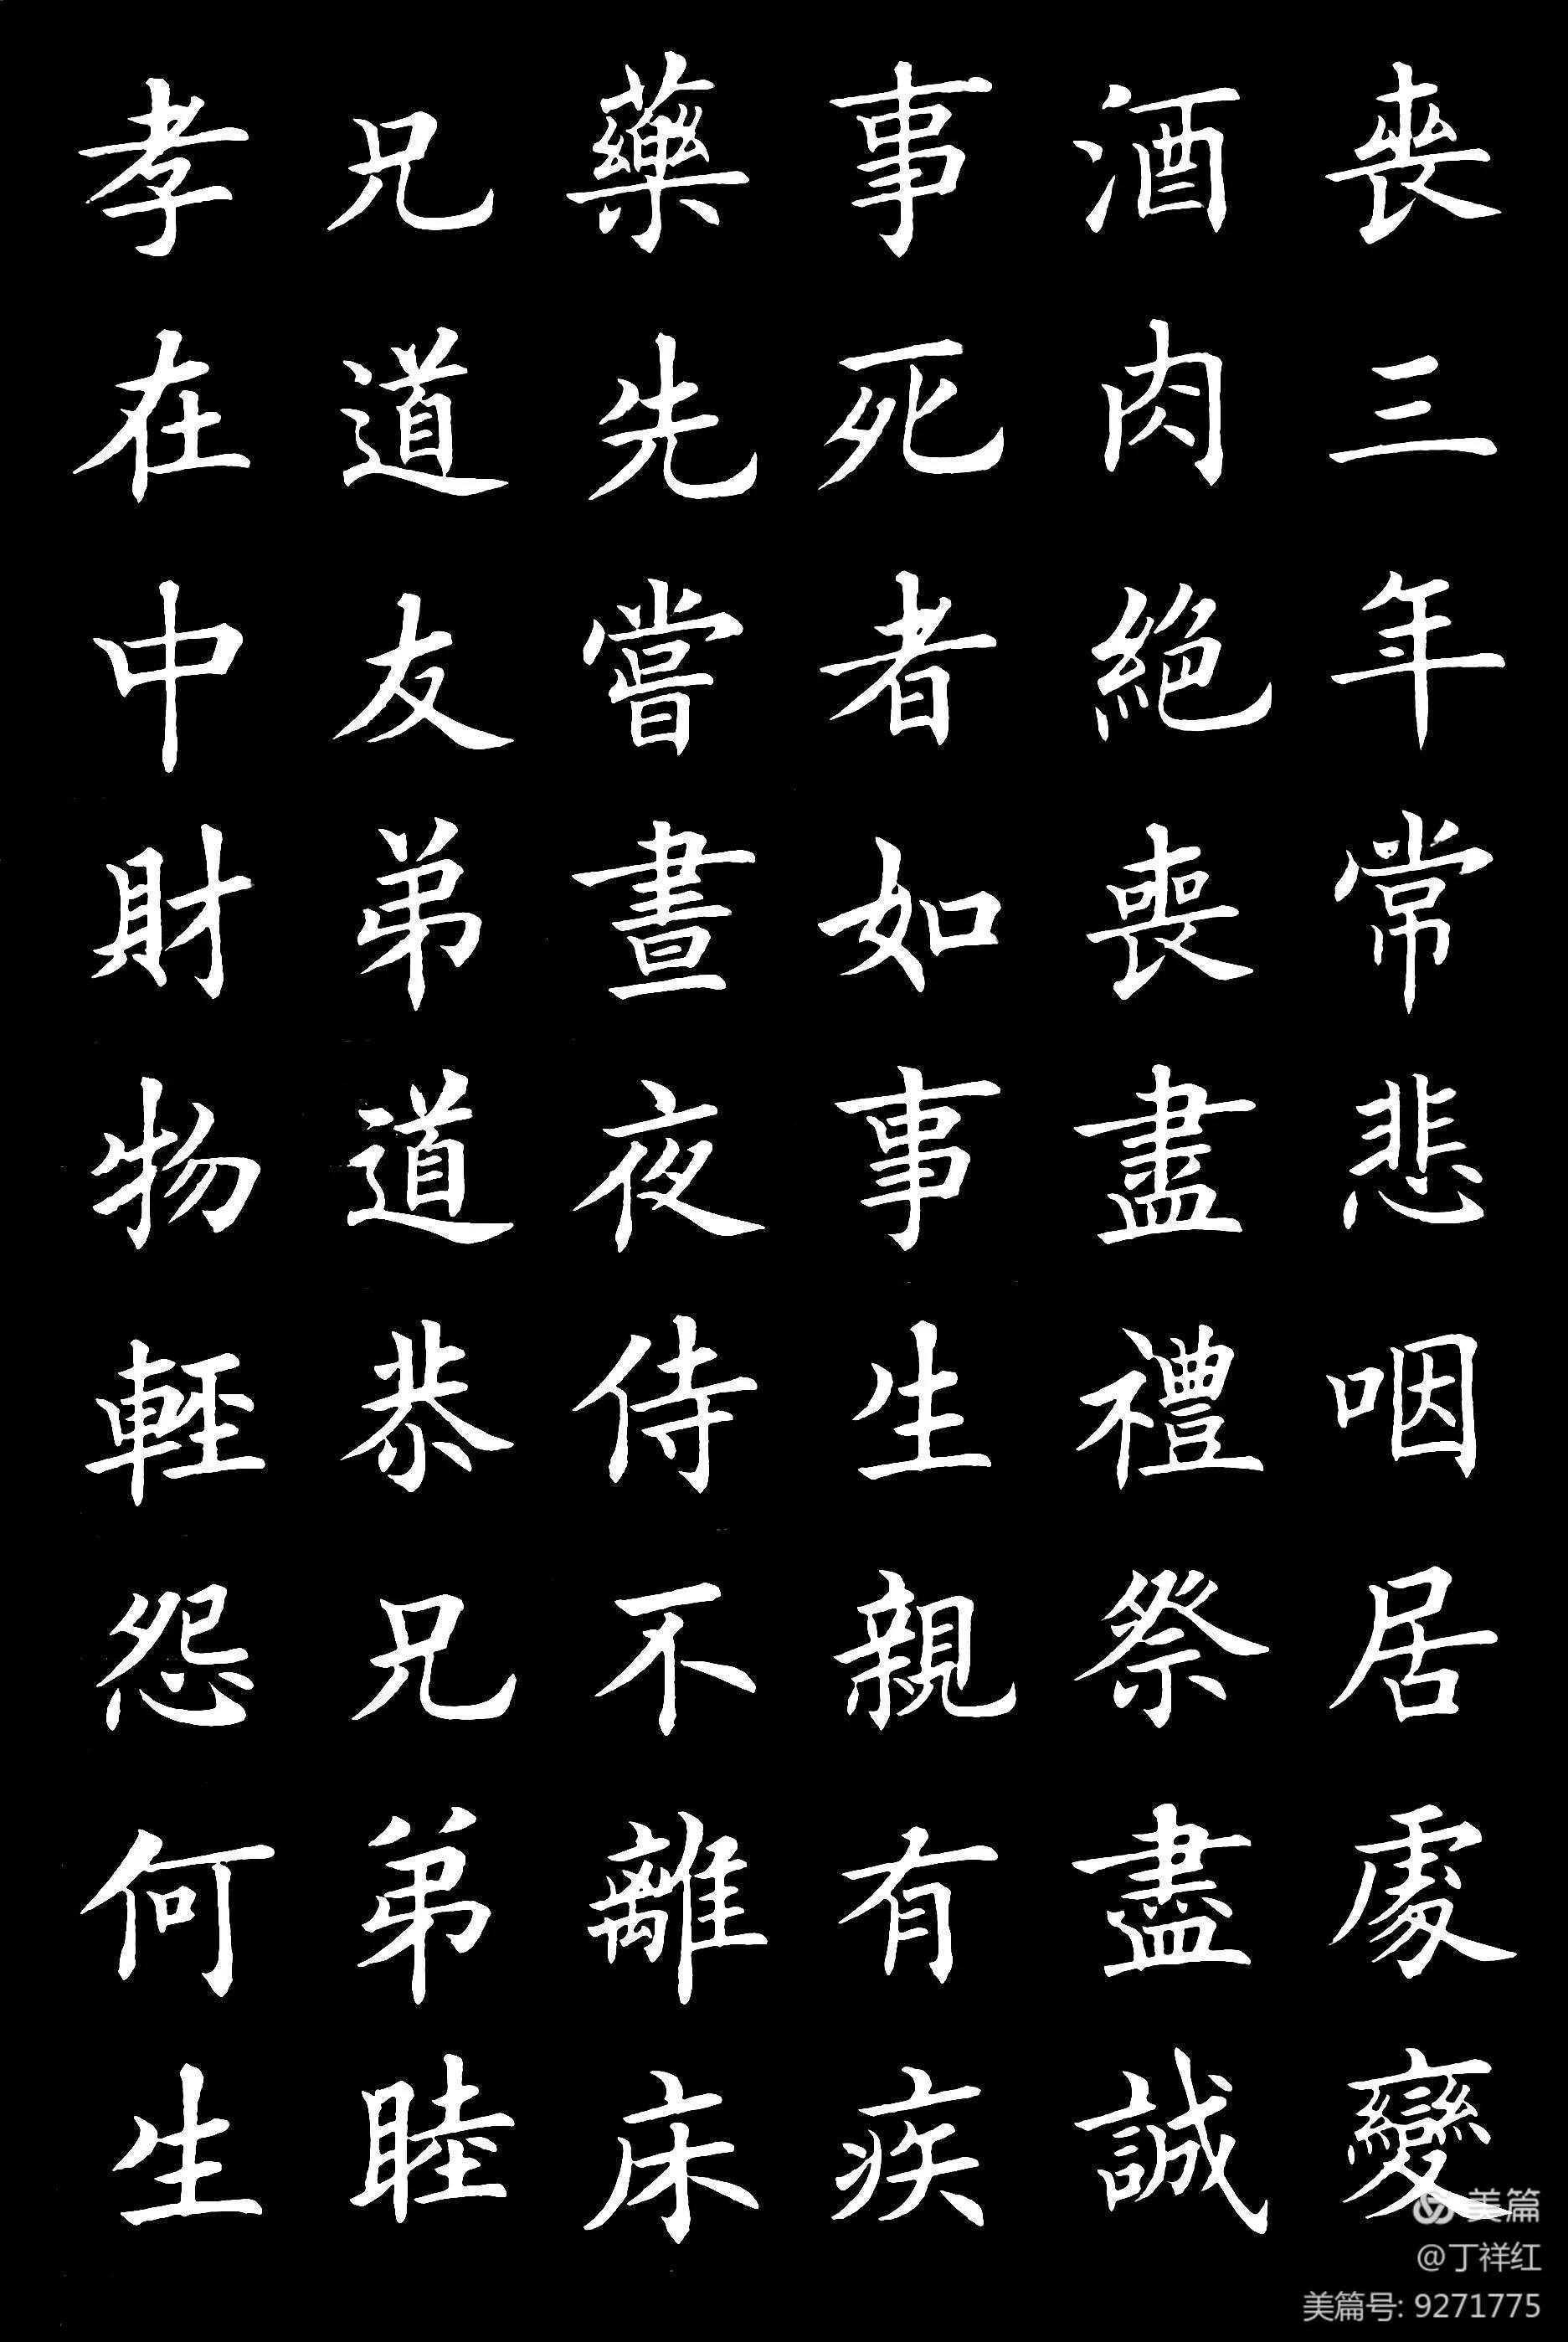 喪三年常悲咽居處變
酒肉絕喪盡禮祭盡誠
事死者如事生親有疾
藥先嘗晝夜侍不離床
兄道友弟道恭兄弟睦
孝在中財物輕怨何生
美篇
@丁祥红
美篇号: 9271775